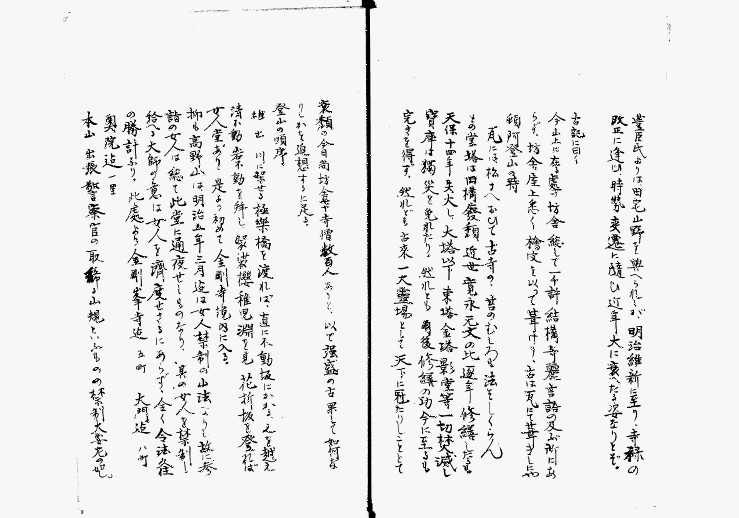 豊臣氏よりは田宅山野を與へられしが、明治維新に至り、寺禄の
改正に逢ひ、時勢変遷に隨ひ近年大に衰へたる姿なりとぞ。
古記に曰く
今山上に在る處の坊舎總して一千許結構奇麗言語の及ぶ所にあ
らず、坊舎屋上悉く檜皮を以つて葺けり、古は瓦にて葺きし
頓阿登山の時
瓦には松さへおひて古寺の 苔のむしろも法をしくらん
の堂塔は旧構廢頽 近世寛永元文の比逐年修繕したるも
天保十四年失火し、大塔以下東塔金塔影堂等一切焚滅し
寶庫は獨災を免れたり、然れとも 前後修繕の功今に至るも
完きを得す、然れども古来一大霊場として天下に冠たりしこととて
衰頽の今日尚坊舎 十寺僧数百人ありと、以て強盛の古 如何な
りしかを追想するに足る
登山の順序
川に架せる極樂橋を渡れば、直に不動坂にかゝる、之を越え
清不動岩不動を拝し、袈裟櫻稚児淵を見 花折坂を登れば
女人堂あり、是より初めて金剛寺境内に入る。
抑も高野山は明治五年三月迠は女人禁制の山法なりし故に参
詣の女人は総て此堂に通夜せしものなり、其の女人を禁制し
給へる大師の意は女人を濟度せざるにあらず、全く令法久住
の勝計なり、此處より金剛峯寺迠 五町 大門迠 八町
奥院迠 一里
本山 出張警察官の取締る山規といふものの禁制大畧左の如し。